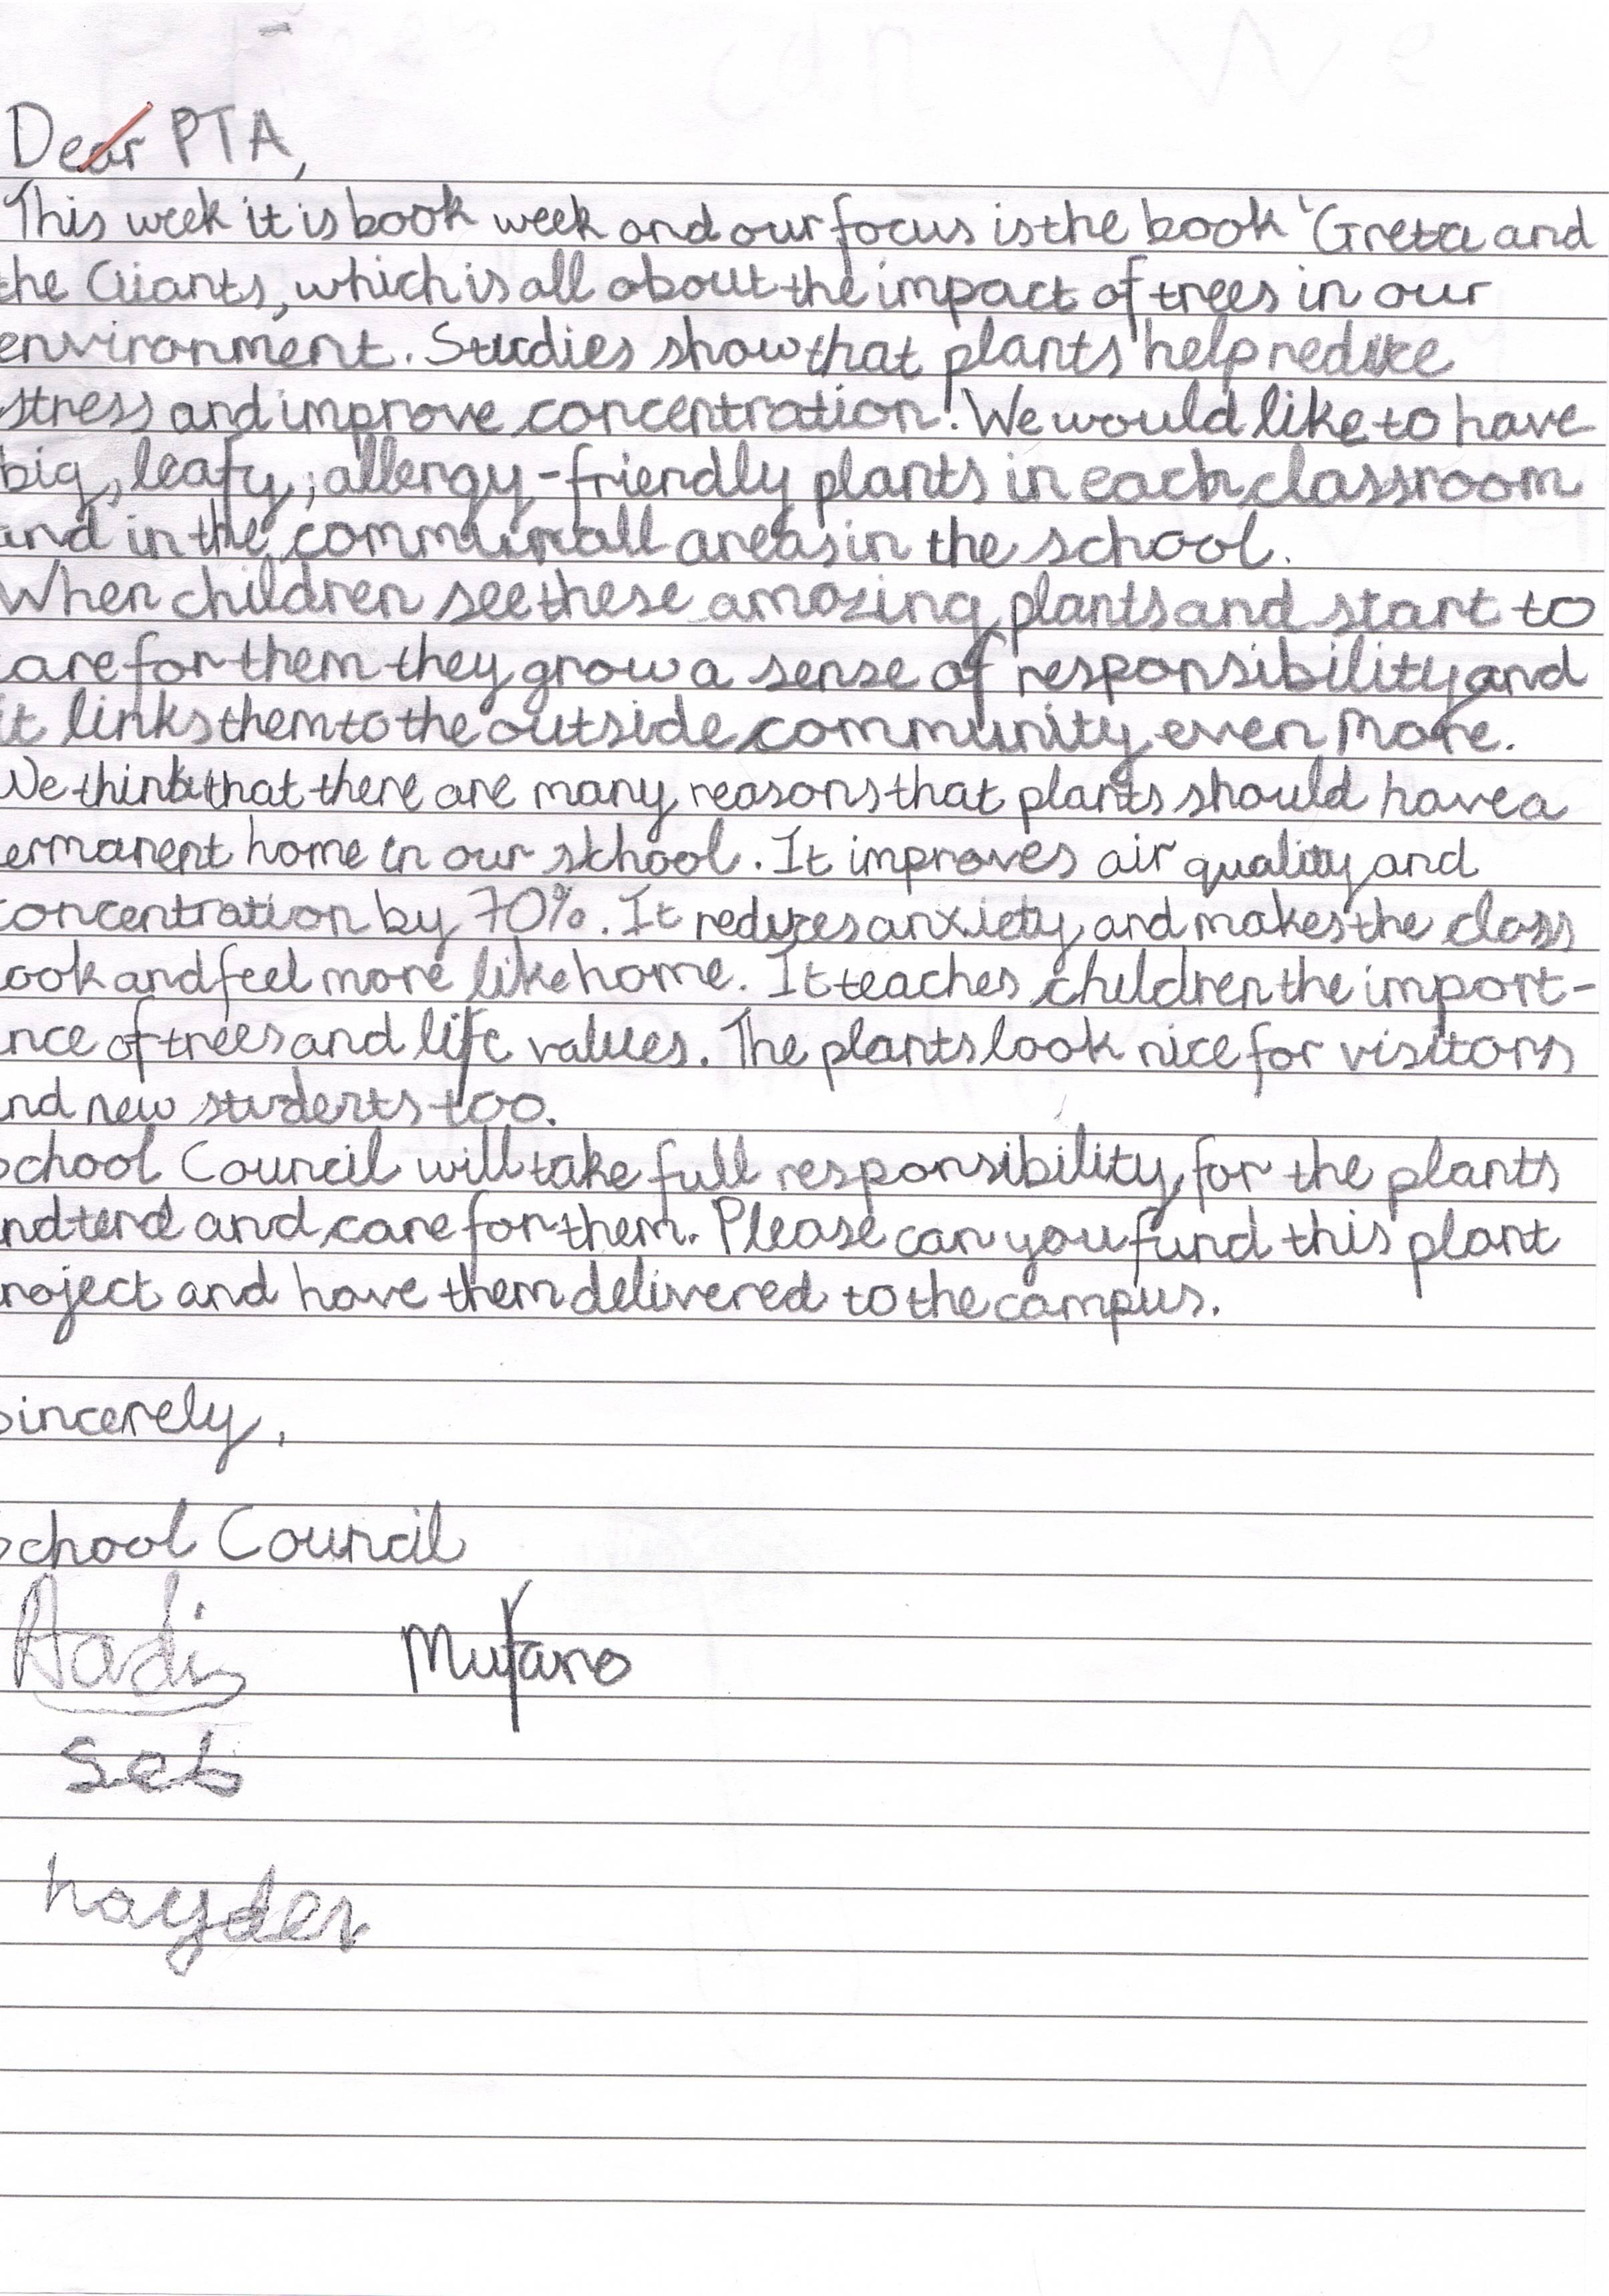 Dear PTA,
This week it is book week and our focus is the book 'Greta and
the Giants, which is all about the impact of trees in our
environment. Studies show that plants help reduce
stress and improve concentration. We would like to have
big, leafy, allergy-friendly plants in each classroom
and in the communall areas in the school.
When children see these amazing plants and start to
are for them they grow a sense of responsibility and
it links them to the outside community even More.
We think that there are many reasons that plants should have a
ermanent home in our school. It improves air quality and
oncentration by 70%. It reduces anxiety and makes the class
ook and feel more like home. It teaches children the import-
nce of trees and life values. The plants look nice for visitors
nd new students too.
chool Council will take full responsibility for the plants
nd tend and care for them. Please can you fund this plant
roject and have them delivered to the campus.
incerely,
chool Council
Aadi Mufaro
seb
hayden